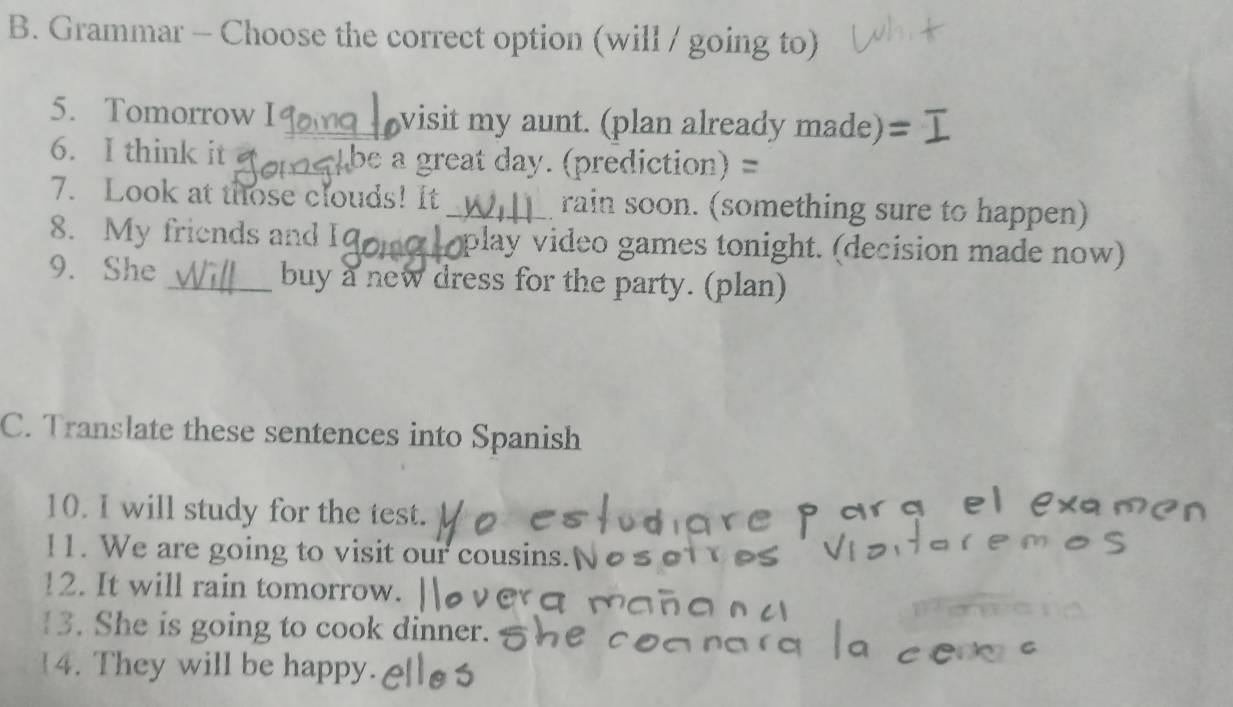 B. Grammar – Choose the correct option (will / going to) Whit
5. Tomorrow I going to visit my aunt. (plan already made) = I
6. I think it going t be a great day. (prediction) =
7. Look at those clouds! It will rain soon. (something sure to happen)
8. My friends and I going to play video games tonight. (decision made now)
9. She Will buy a new dress for the party. (plan)
C. Translate these sentences into Spanish
10. I will study for the test. Yo estudiare para el examen
11. We are going to visit our cousins. Nosotros visitaremos
12. It will rain tomorrow. llovera mañana
13. She is going to cook dinner. She la
14. They will be happy. ellos